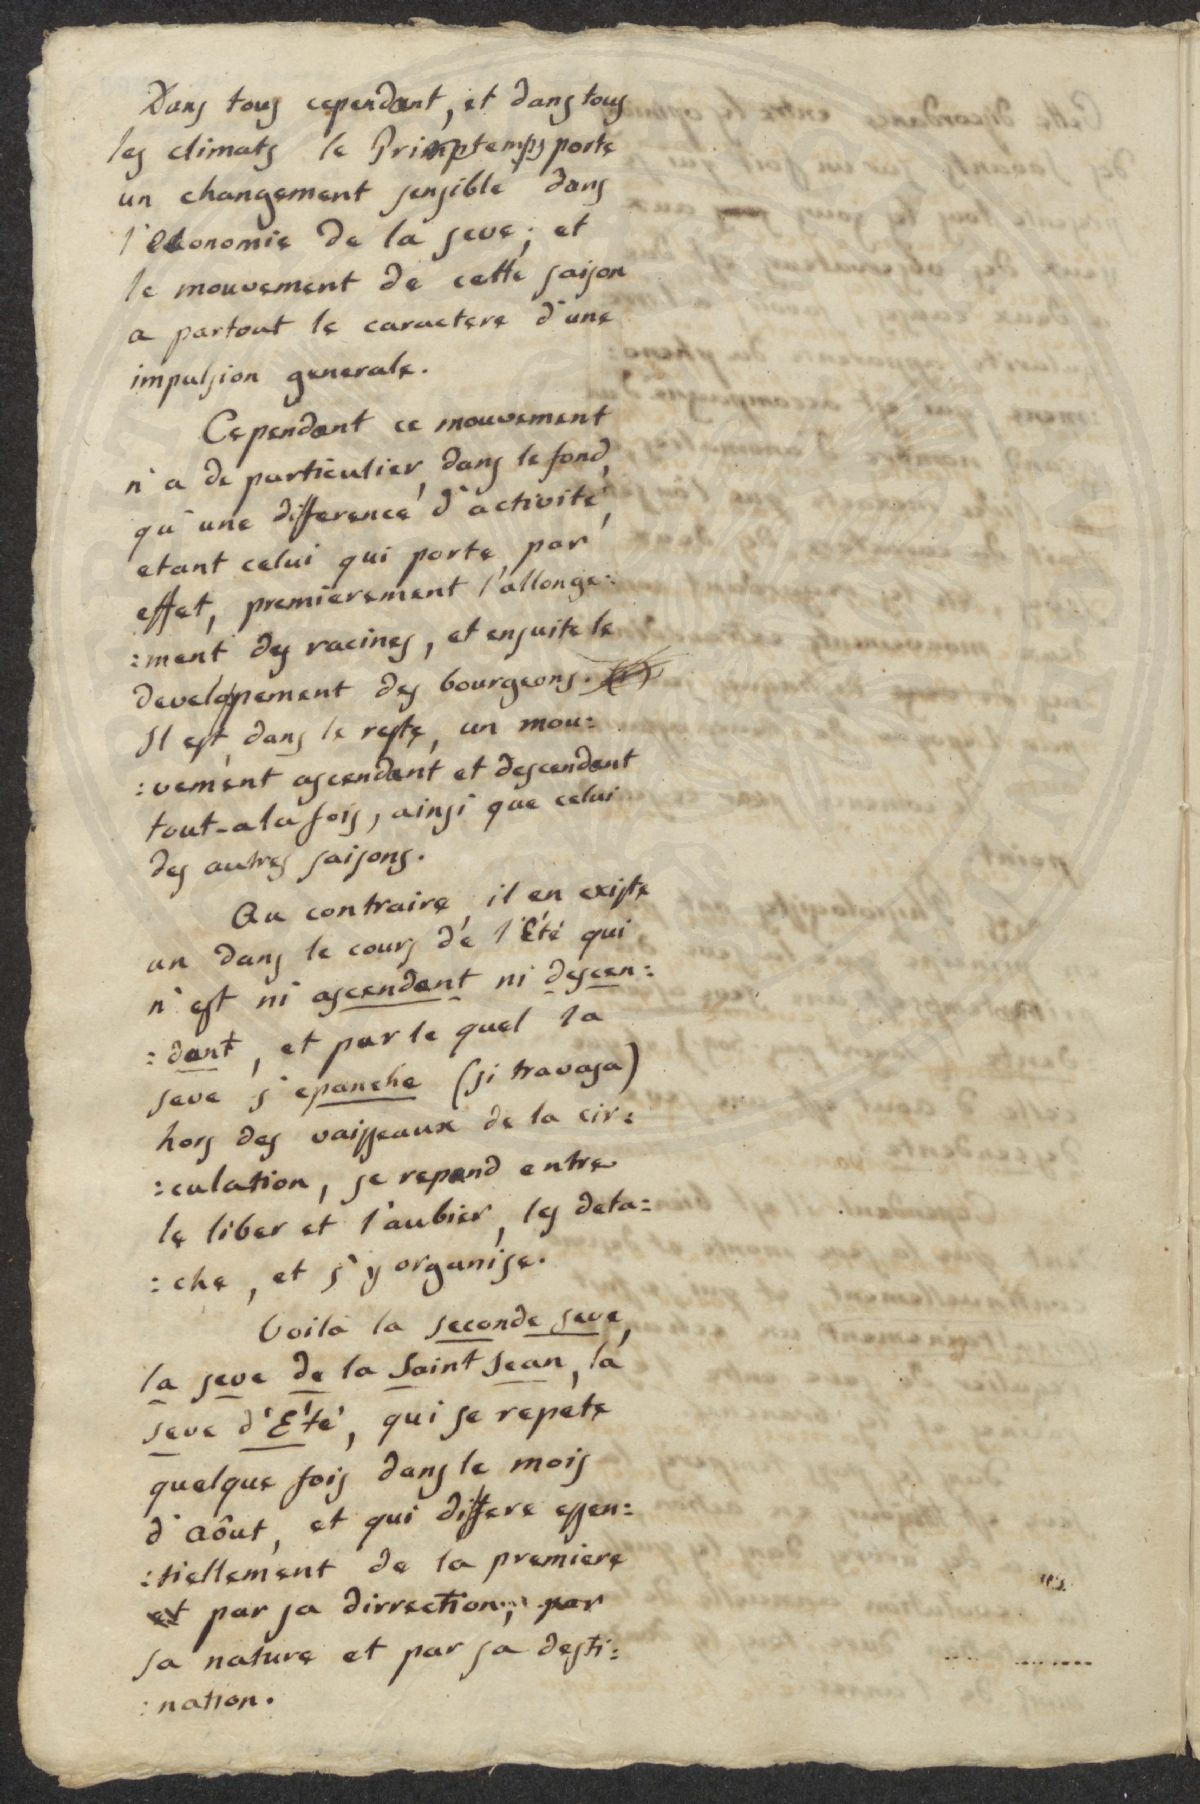 Dans tous cependant, et dans tous
les climats le Primptemps porte
un changement sensible dans
l'economie de la seve; et
le mouvement de cette saison
a partout le caractere d'une
impulsion generale.
Cependant ce mouvement
n'a de particulier, dans le fond,
qu'une difference d'activité,
etant celui qui porte, par
effet, premierement l'allonge:
:ment des racines, et ensuite le
developement des bourgeons.
Il est, dans le reste, un mou:
:vement ascendent et descendent
tout-a la fois, ainsi que celui
des autres saisons.
Au contraire, il en existe
un dans le cours de l'Eté qui
n'est ni ascendent ni descen:
:dent, et par le quel la
seve s'epanche (si travasa)
hors des vaisseaux de la cir:
:culation, se repend entre
le liber et l'aubier, les deta:
:che, et s'y organise.
Voilà la seconde seve,
la seve de la Saint Jean, la
seve d'Eté, qui se repete
quelque fois dans le mois
d'Aôut, et qui differe essen:
:tiellement de la premiere
et par sa dirrection, par
sa nature et par sa desti:
:nation.